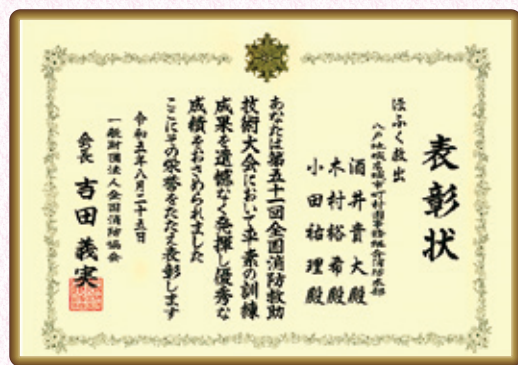 表彰状
ほふく救出
八戸地域広域市町村圏事務組合消防本部
酒井貴大殿
木村裕希殿
小田祐理殿
あなたは第五十一回全国消防救助
技術大会において平素の訓練
成果を遺憾なく発揮し優秀な
成績をおさめられました
ここにその栄誉をたたえ表彰します
令和五年八月二十五日
一般財団法人全国消防協会
会長 吉田義実